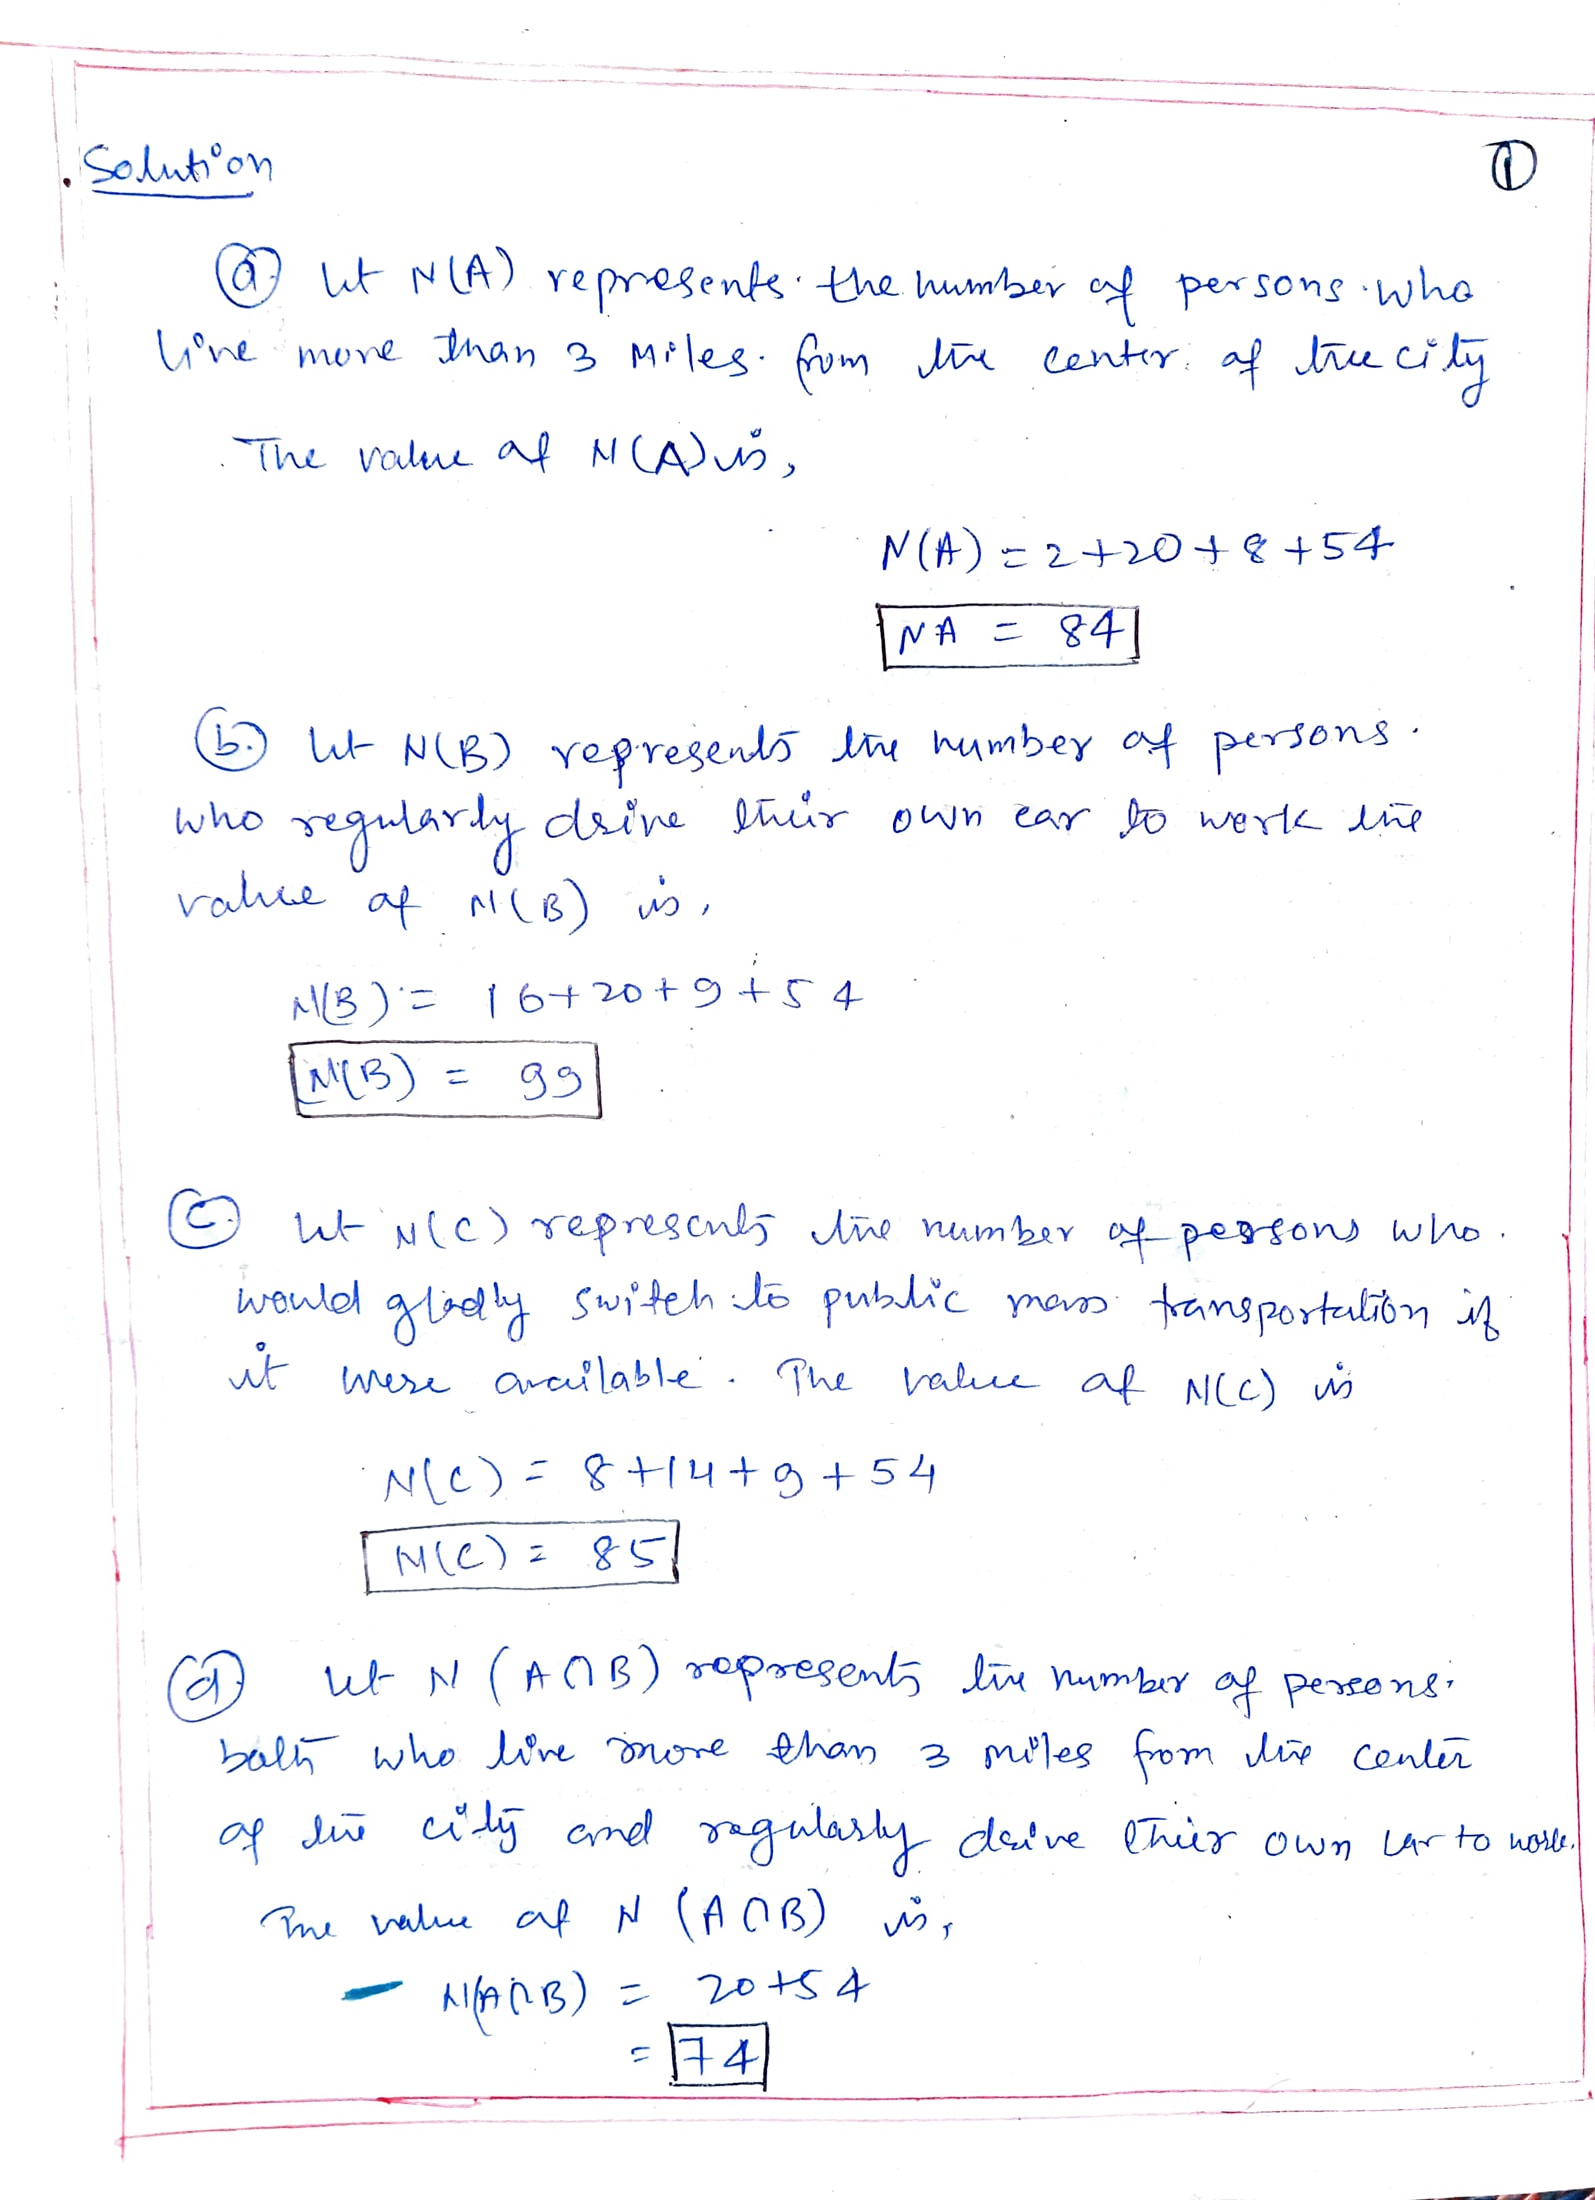 Solution
①
ⓐ let N(A) represents the number of persons who
live more than 3 Miles. from the center of the city
The value of N(A) is,
N(A) = 2+20+8+54
NA = 84
ⓑ let N(B) represents the number of persons.
who regularly drive their own car to work the
value of N(B) is,
N(B) = 16+20+9+54
N(B) = 99
ⓒ let N(C) represents the number of persons who.
would gladly switch to public mass transportation if
it were available. The value of N(C) is
N(C) = 8+14+9+54
N(C) = 85
ⓓ let N (A∩B) represents the number of persons.
both who live more than 3 miles from the center
of the city and regularly drive their own car to work.
The value of N (A∩B) is,
N(A∩B) = 20+54
= 74